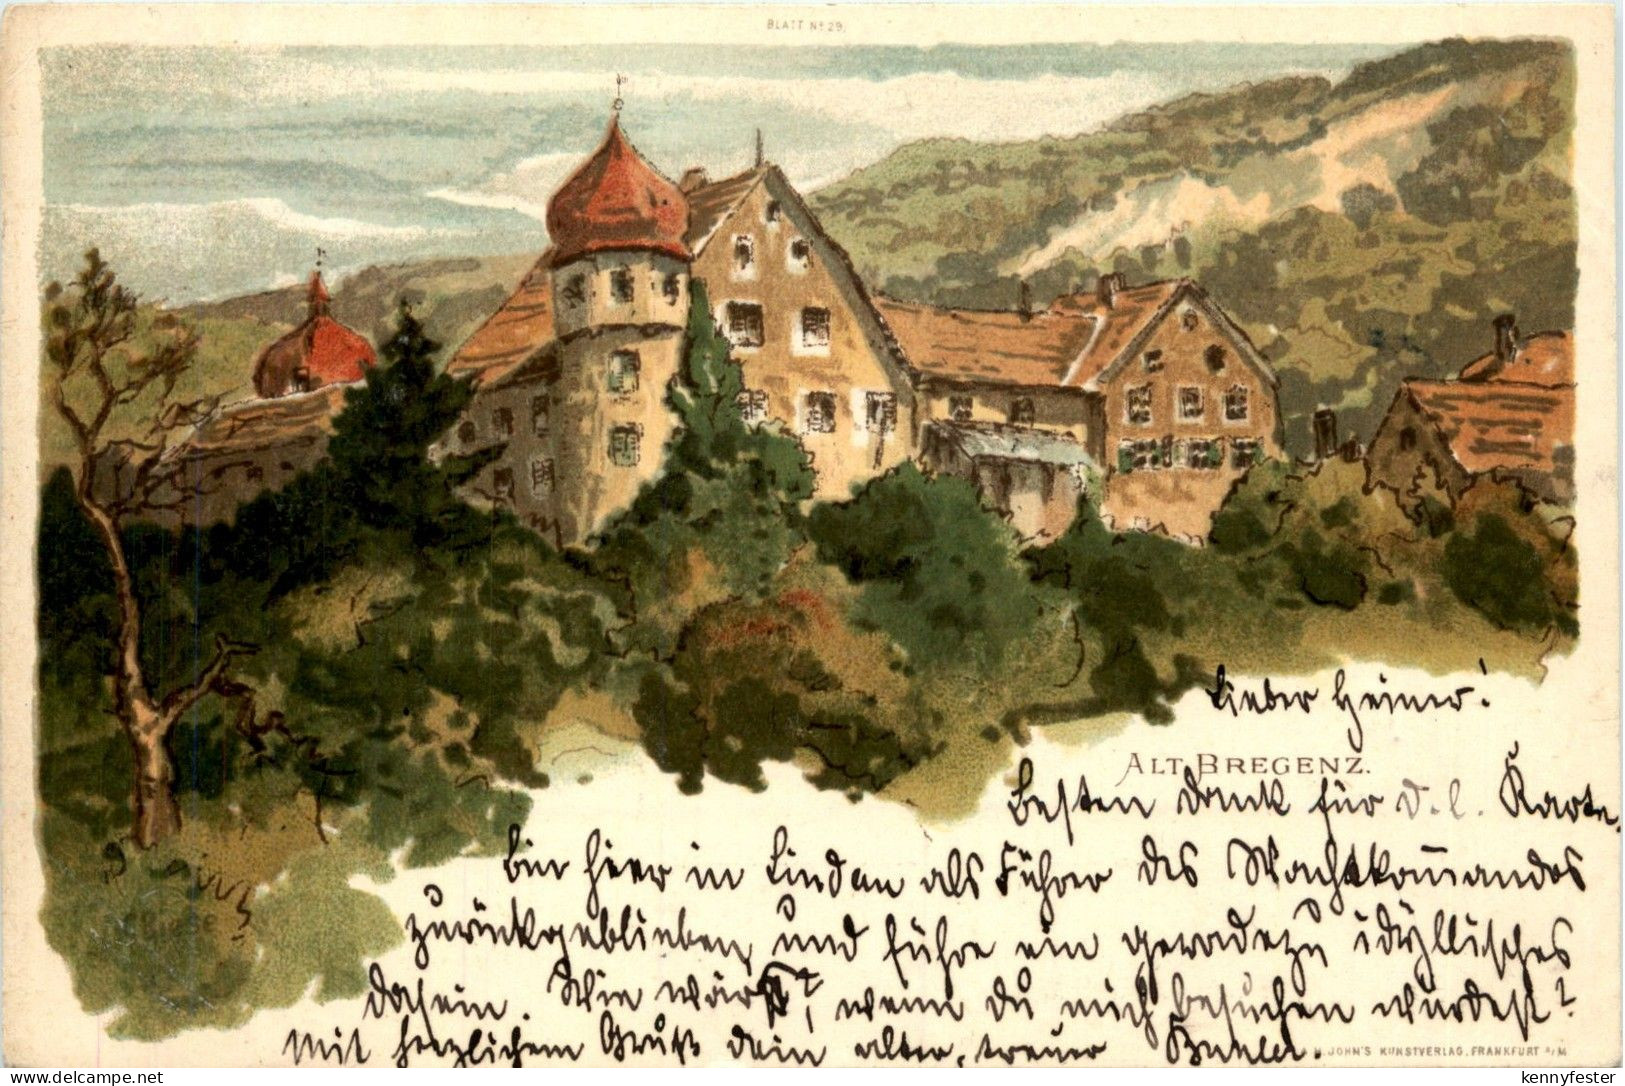 BLATT No 29.
Lieber Heiner!
ALT BREGENZ.
Besten Dank für d. l. Karte.
bin hier in Lindau als Führer des Wachtkom̄andos
zurückgeblieben und führe ein geradezu idyllisches
Dasein. Wie wär's, wenn du mich besuchen würdest?
Mit herzlichem Gruß Dein alter, treuer
JOHN'S KUNSTVERLAG, FRANKFURT a/M
https://www.delcampe.net
kennyfester